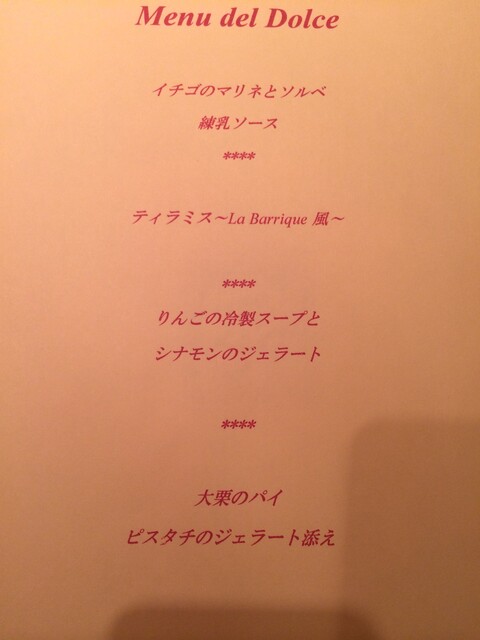 Menu del Dolce
イチゴのマリネとソルベ
練乳ソース
****
ティラミス～La Barrique 風～
****
りんごの冷製スープと
シナモンのジェラート
****
大栗のパイ
ピスタチのジェラート添え